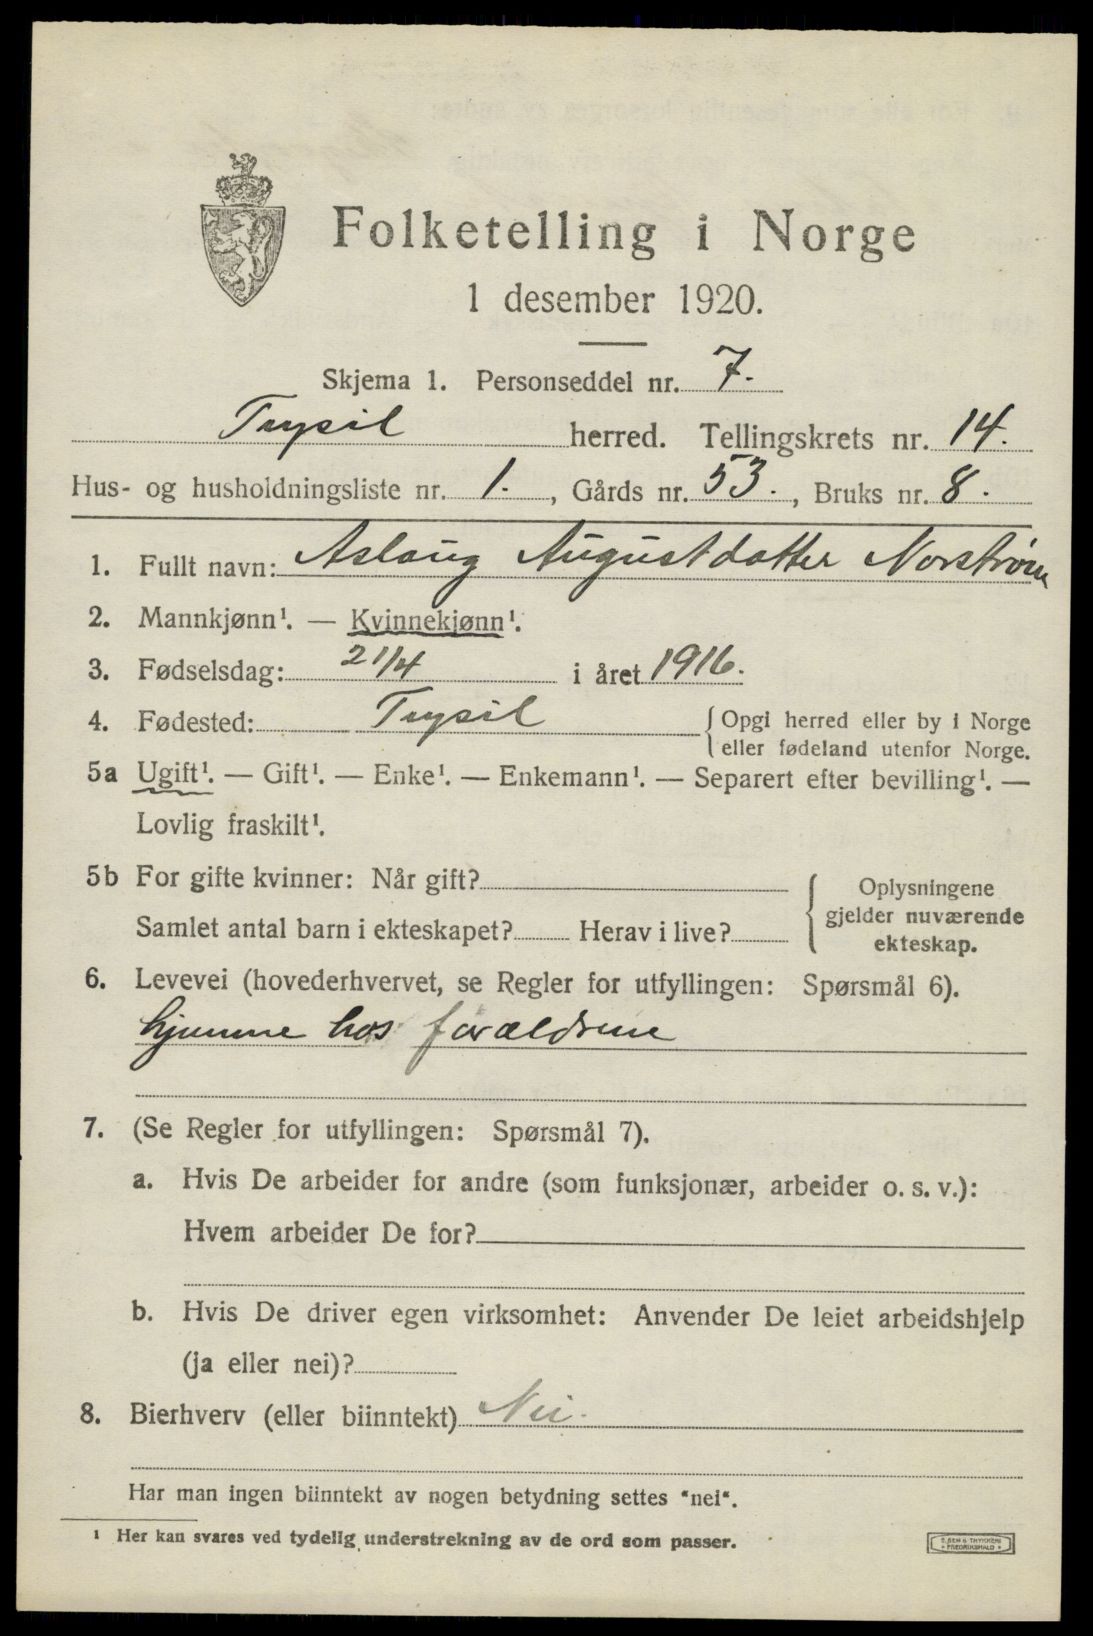 Folketelling i Norge
1 desember 1920.
Skjema 1. Personseddel nr. 7.
Trysil herred. Tellingskrets nr. 14.
Hus- og husholdningsliste nr. 1., Gårds nr. 53., Bruks nr. 8.
1. Fullt navn: Aslaug Augustdatter Norstrøm
2. Mannkjønn¹. — Kvinnekjønn¹.
3. Fødselsdag: 21/4 i året 1916.
4. Fødested: Trysil {Opgi herred eller by i Norge
eller fødeland utenfor Norge.
5a Ugift¹. — Gift¹. — Enke¹. — Enkemann¹. — Separert efter bevilling¹. —
Lovlig fraskilt¹.
5b For gifte kvinner: Når gift?
Samlet antal barn i ekteskapet? Herav i live?
{ Oplysningene
gjelder nuværende
ekteskap.
6. Levevei (hovederhvervet, se Regler for utfyllingen: Spørsmål 6).
hjemme hos forældrene
7. (Se Regler for utfyllingen: Spørsmål 7).
a. Hvis De arbeider for andre (som funksjonær, arbeider o. s. v.):
Hvem arbeider De for?
b. Hvis De driver egen virksomhet: Anvender De leiet arbeidshjelp
(ja eller nei)?
8. Bierhverv (eller biinntekt) Nei.
Har man ingen biinntekt av nogen betydning settes "nei".
¹ Her kan svares ved tydelig understrekning av de ord som passer.
FREDRIKSHALD